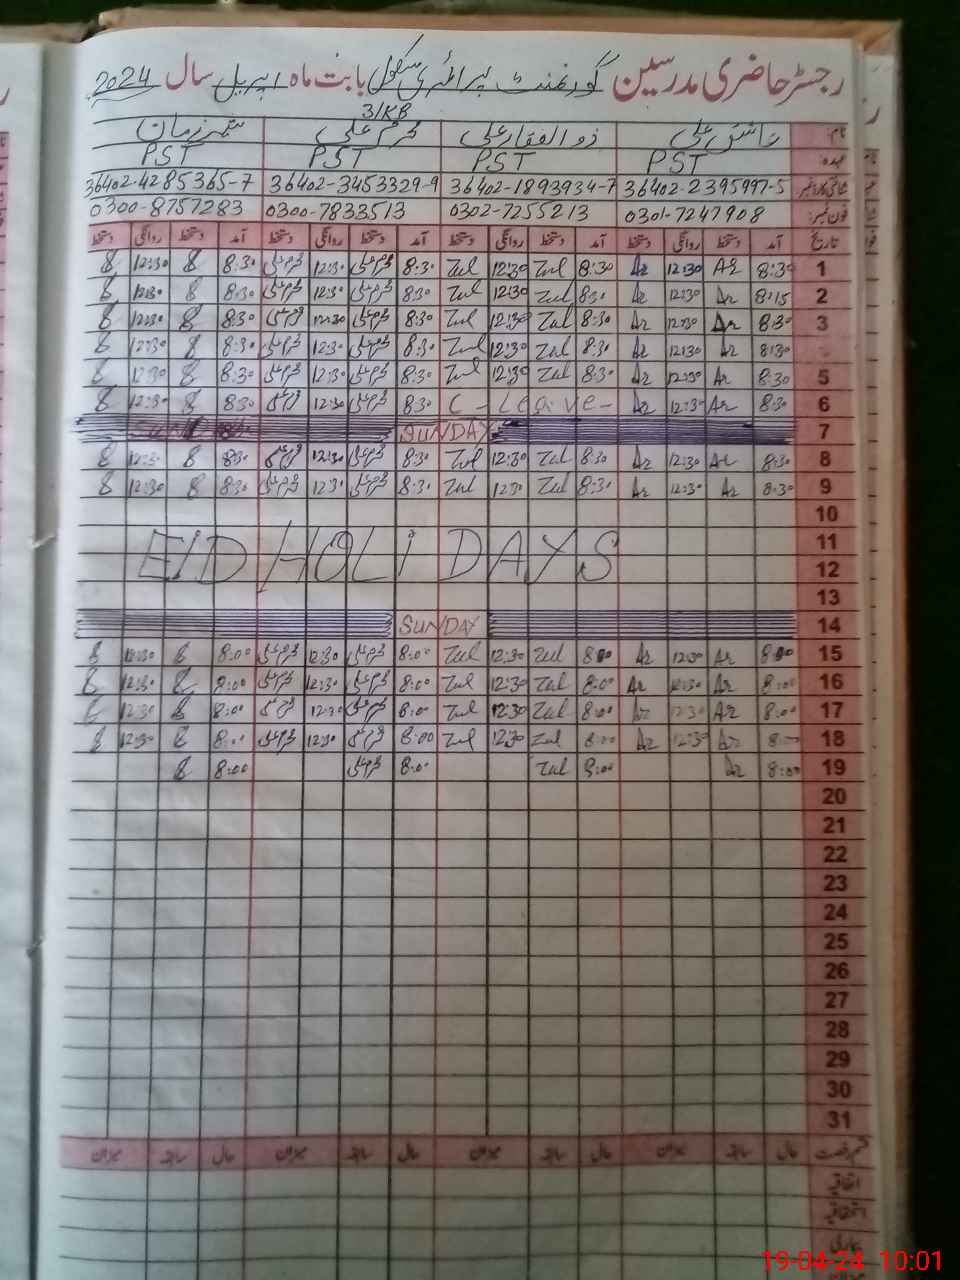 رجسٹر حاضری مدرسین گورنمنٹ پرائمری سکول بابت ماہ اپریل سال 2024
31KB
نام: عاشق علی ذوالفقار علی محرم علی
عہدہ PST PST PST PST
شناختی کارڈ نمبر 36402-2395997-5 36402-1893934-7 36402-3453329-9 36402-4285365-7
فون نمبر: 0301-7247908 0302-7255213 0300-7833513 0300-8757283
تاریخ آمد دستخط روانگی دستخط آمد دستخط روانگی دستخط آمد دستخط روانگی دستخط آمد دستخط روانگی دستخط
1 8:30 Az 12:30 Az 8:30 Zul 12:30 Zul 8:30 محرم علی 12:30 محرم علی 8:30 12:30
2 8:15 Az 12:30 Az 8:30 Zul 12:30 Zul 8:30 محرم علی 12:30 محرم علی 8:30 12:30
3 8:30 Az 12:30 Az 8:30 Zul 12:30 Zul 8:30 محرم علی 12:30 محرم علی 8:30 12:30
8:30 Az 12:30 Az 8:30 Zul 12:30 Zul 8:30 محرم علی 12:30 محرم علی 8:30 12:30
5 8:30 Az 12:30 Az 8:30 Zul 12:30 Zul 8:30 محرم علی 12:30 محرم علی 8:30 12:30
6 8:30 Az 12:30 Az C-Leave- 8:30 محرم علی 12:30 محرم علی 8:30 12:30
7 SUNDAY
8 8:30 Az 12:30 Az 8:30 Zul 12:30 Zul 8:30 محرم علی 12:30 محرم علی 8:30 12:30
9 8:30 Az 12:30 Az 8:30 Zul 12:30 Zul 8:30 محرم علی 12:30 محرم علی 8:30 12:30
10
11
12 EID HOLIDAYS
13
14 SUNDAY
15 8:00 Az 12:30 Az 8:00 Zul 12:30 Zul 8:00 محرم علی 12:30 محرم علی 8:00 12:30
16 8:00 Az 12:30 Az 8:00 Zul 12:30 Zul 8:00 محرم علی 12:30 محرم علی 8:00 12:30
17 8:00 Az 12:30 Az 8:00 Zul 12:30 Zul 8:00 محرم علی 12:30 محرم علی 8:00 12:30
18 8:00 Az 12:30 Az 8:00 Zul 12:30 Zul 8:00 محرم علی 12:30 محرم علی 8:00 12:30
19 8:00 Az 8:00 Zul 8:00 محرم علی 8:00
20
21
22
23
24
25
26
27
28
29
30
31
قسم رخصت حال سابقہ میزان حال سابقہ میزان حال سابقہ میزان حال سابقہ میزان
اتفاقیہ
استحقاقیہ
بیماری
19-04-24 10:01